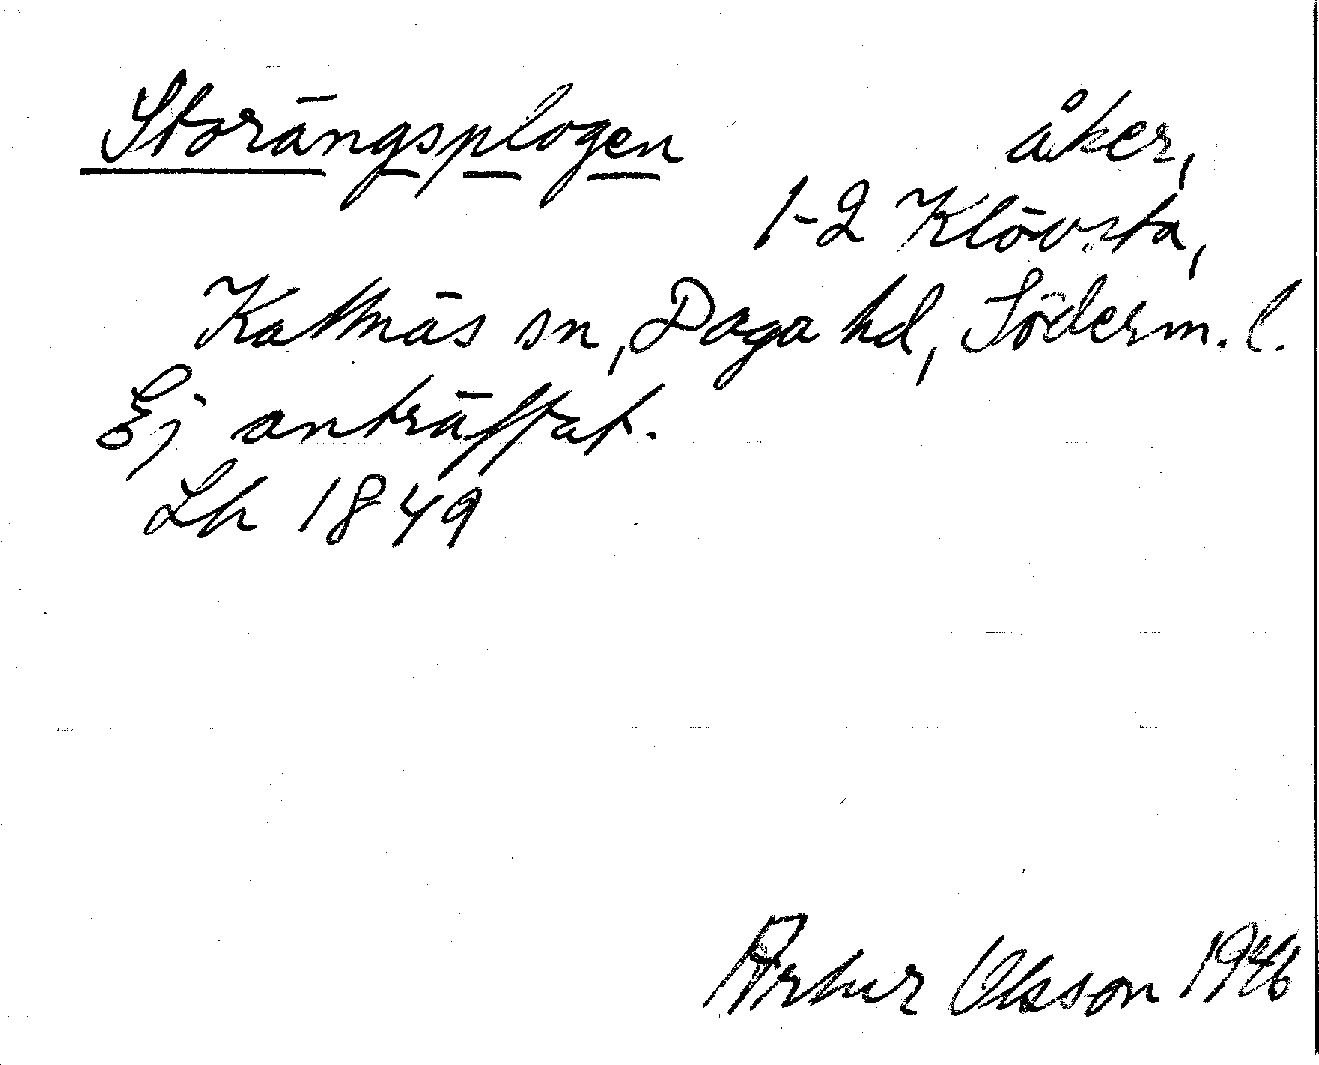 Storängsplogen åker,
1-2 Klövsta,
Kattnäs sn, Daga hd, Söderm. l.
Ej anträffat.
Lh 1849
Artur Olsson 1946